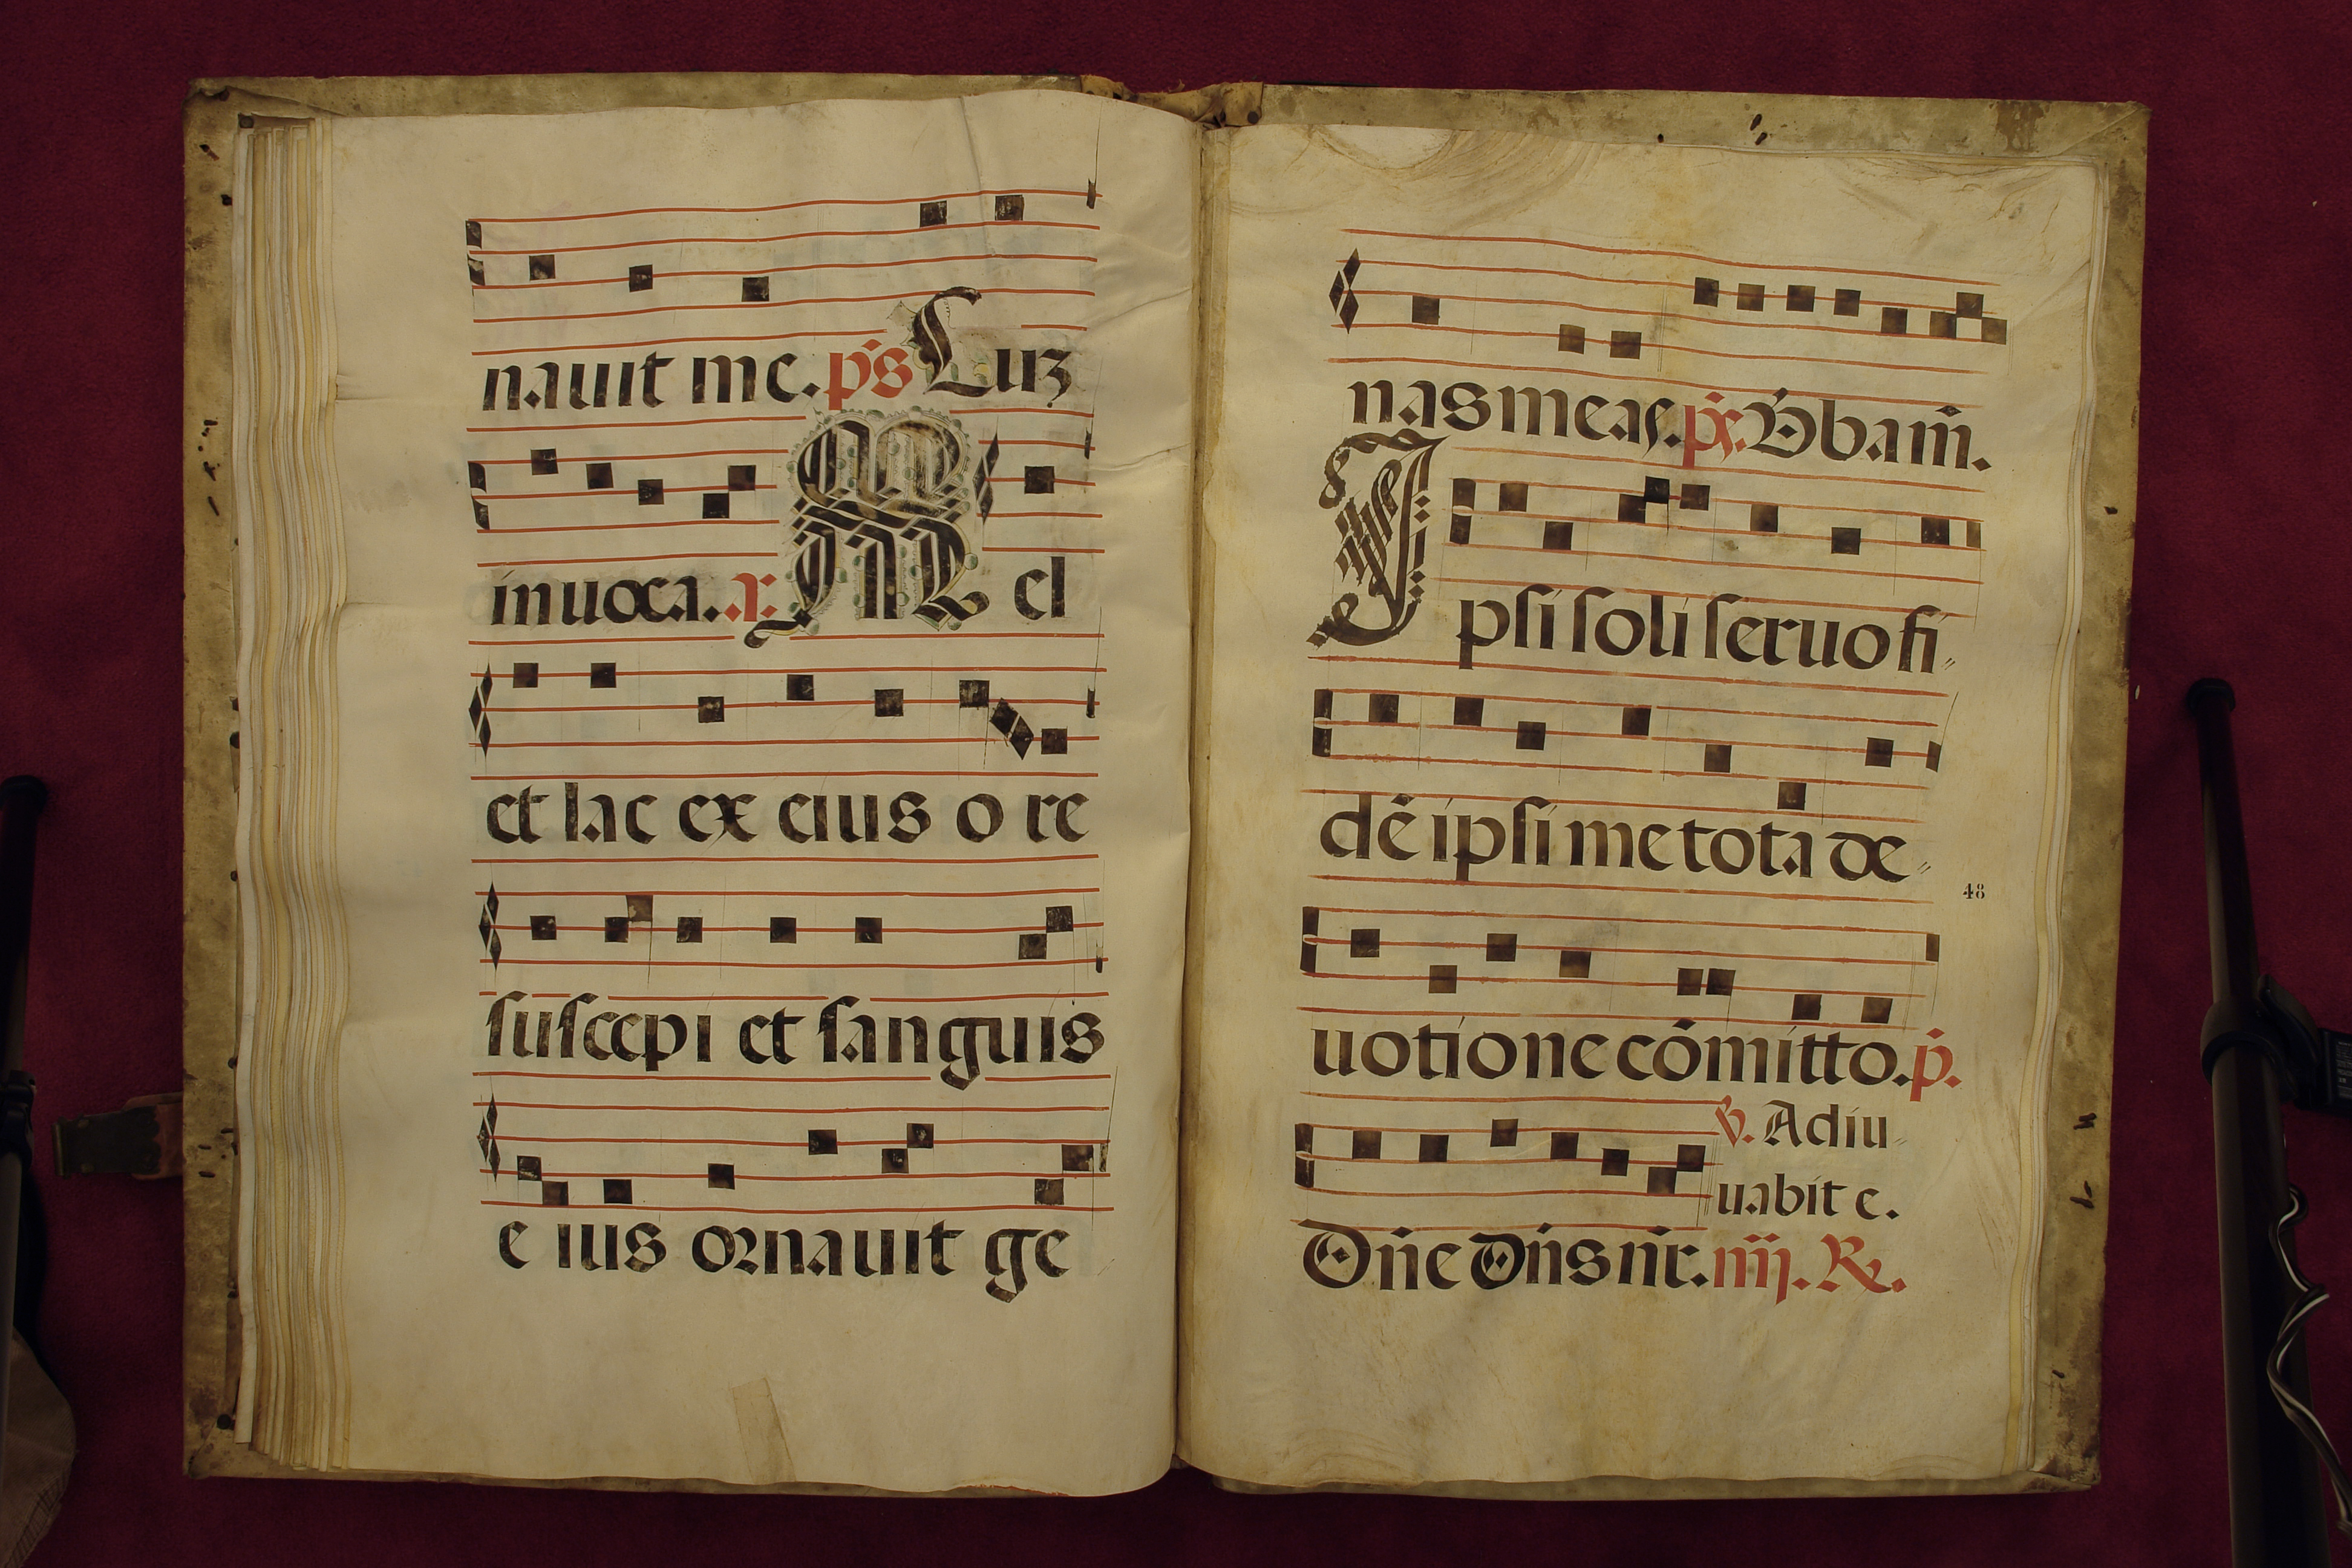 nauit me. ps Luz
inuoca. a. Mel
et lac ex eius o re
suscepi et sanguis
e ius ornauit ge
nas meas. px. Bbam̄.
Ipsi soli seruo fi
dē ipsi me tota de
48
uotione cōmitto. p.
v. Adiu
uabit e.
Dn̄e Dn̄s nr̄. iiij. R.